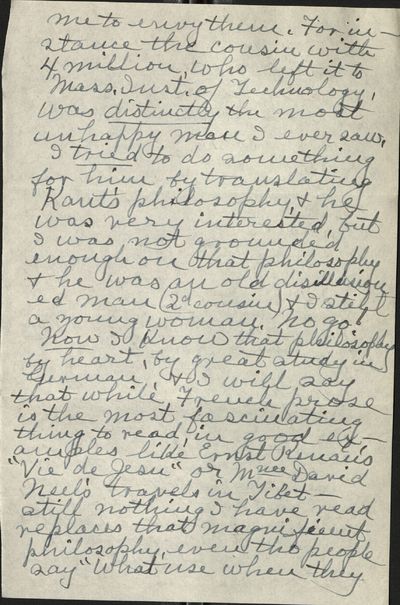 me to envy them. For in-
stance the cousin with
4 million, who left it to
Mass. Inst. of Technology,
was distinctly the most
unhappy man I ever saw.
I tried to do something
for him by translating
Kant's philosophy, & he
was very interested, but
I was not grounded
enough on that philosophy
& he was an old disillusion
ed man (2d cousin) & I still
a young woman. No go.
Now I know that philosophy
by heart, by great study in
German, & I will say
that while French prose
is the most fascinating
thing to read, in good ex-
amples like Ernst Renan's
"Vie de Jesu" or Mmee David
Neel's travels in Tibet -
still nothing I have read
replaces that magnificent
philosophy, even tho people
say "What use when they